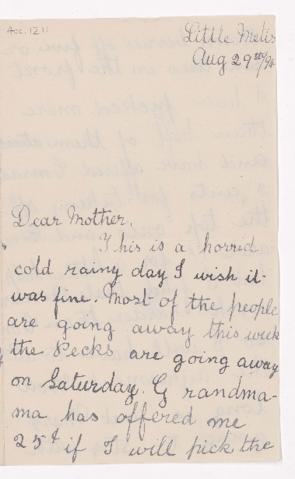 Acc. 1211
Little Metis
Aug 29th/94
Dear Mother,
This is a horred
cold rainy day I wish it
was fine. Most of the people
are going away this week
the Pecks are going away
on Saturday. Grandma-
ma has offered me
25¢ if I will pick the